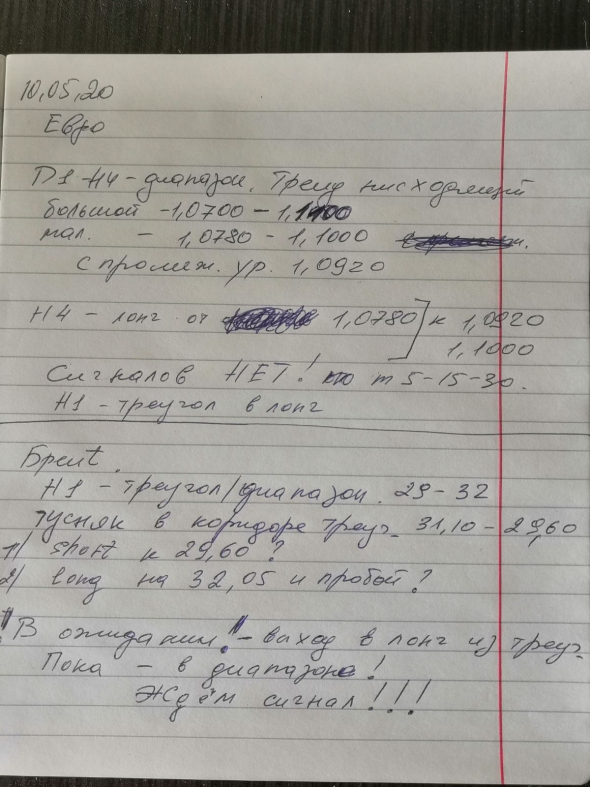 10,05,20
Евро
D1 H4 - диапазон. Тренд нисходящий
большой - 1,0700 - 1,1400
мал. - 1,0780 - 1,1000
с промеж. ур. 1,0920
H4 - лонг от 1,0780] к 1,0920
1,1000
Сигналов НЕТ! по m 5-15-30.
H1 - треугол в лонг
Брент.
H1 - треугол/диапазон. 29-32
тусняк в коридоре треуг. 31,10 - 29,60
1/ short к 29,60 ?
2/ long на 32,05 и пробой ?
"В ожидании!" - выход в лонг из треуг.
Пока - в диапазоне!
Ждём сигнал!!!